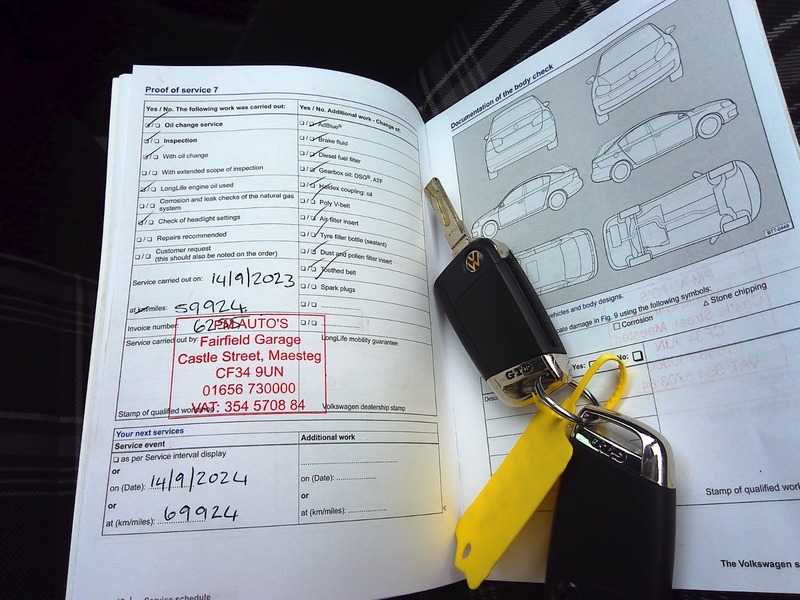 Proof of service 7
Yes / No. The following work was carried out:
Oil change service
Inspection
With oil change
With extended scope of inspection
LongLife engine oil used
Corrosion and leak checks of the natural gas
system
Check of headlight settings
Repairs recommended
Customer request
(this should also be noted on the order)
Service carried out on: 14/9/2023
at km/miles: 59924
Invoice number:
Service carried out by:
PM AUTO'S
Fairfield Garage
Castle Street, Maesteg
CF34 9UN
01656 730000
VAT: 354 5708 84
Stamp of qualified
Yes / No. Additional work - Change of:
AdBlue®
Brake fluid
Diesel fuel filter
Gearbox oil: DSG®, ATF
Haldex coupling: oil
Poly V-belt
Air filter insert
Tyre filler bottle (sealant)
Dust and pollen filter insert
Toothed belt
Spark plugs
LongLife mobility guarantee:
Volkswagen dealership stamp
Your next services
Service event
as per Service interval display
or
on (Date): 14/9/2024
or
at (km/miles): 69924
Additional work
on (Date):
or
at (km/miles):
Service schedule
Documentation of the body check
B7T-0449
vehicles and body designs.
cate damage in Fig. 9 using the following symbols:
Corrosion
△ Stone chipping
Yes:
No:
Stamp of qualified
The Volkswagen
GTD